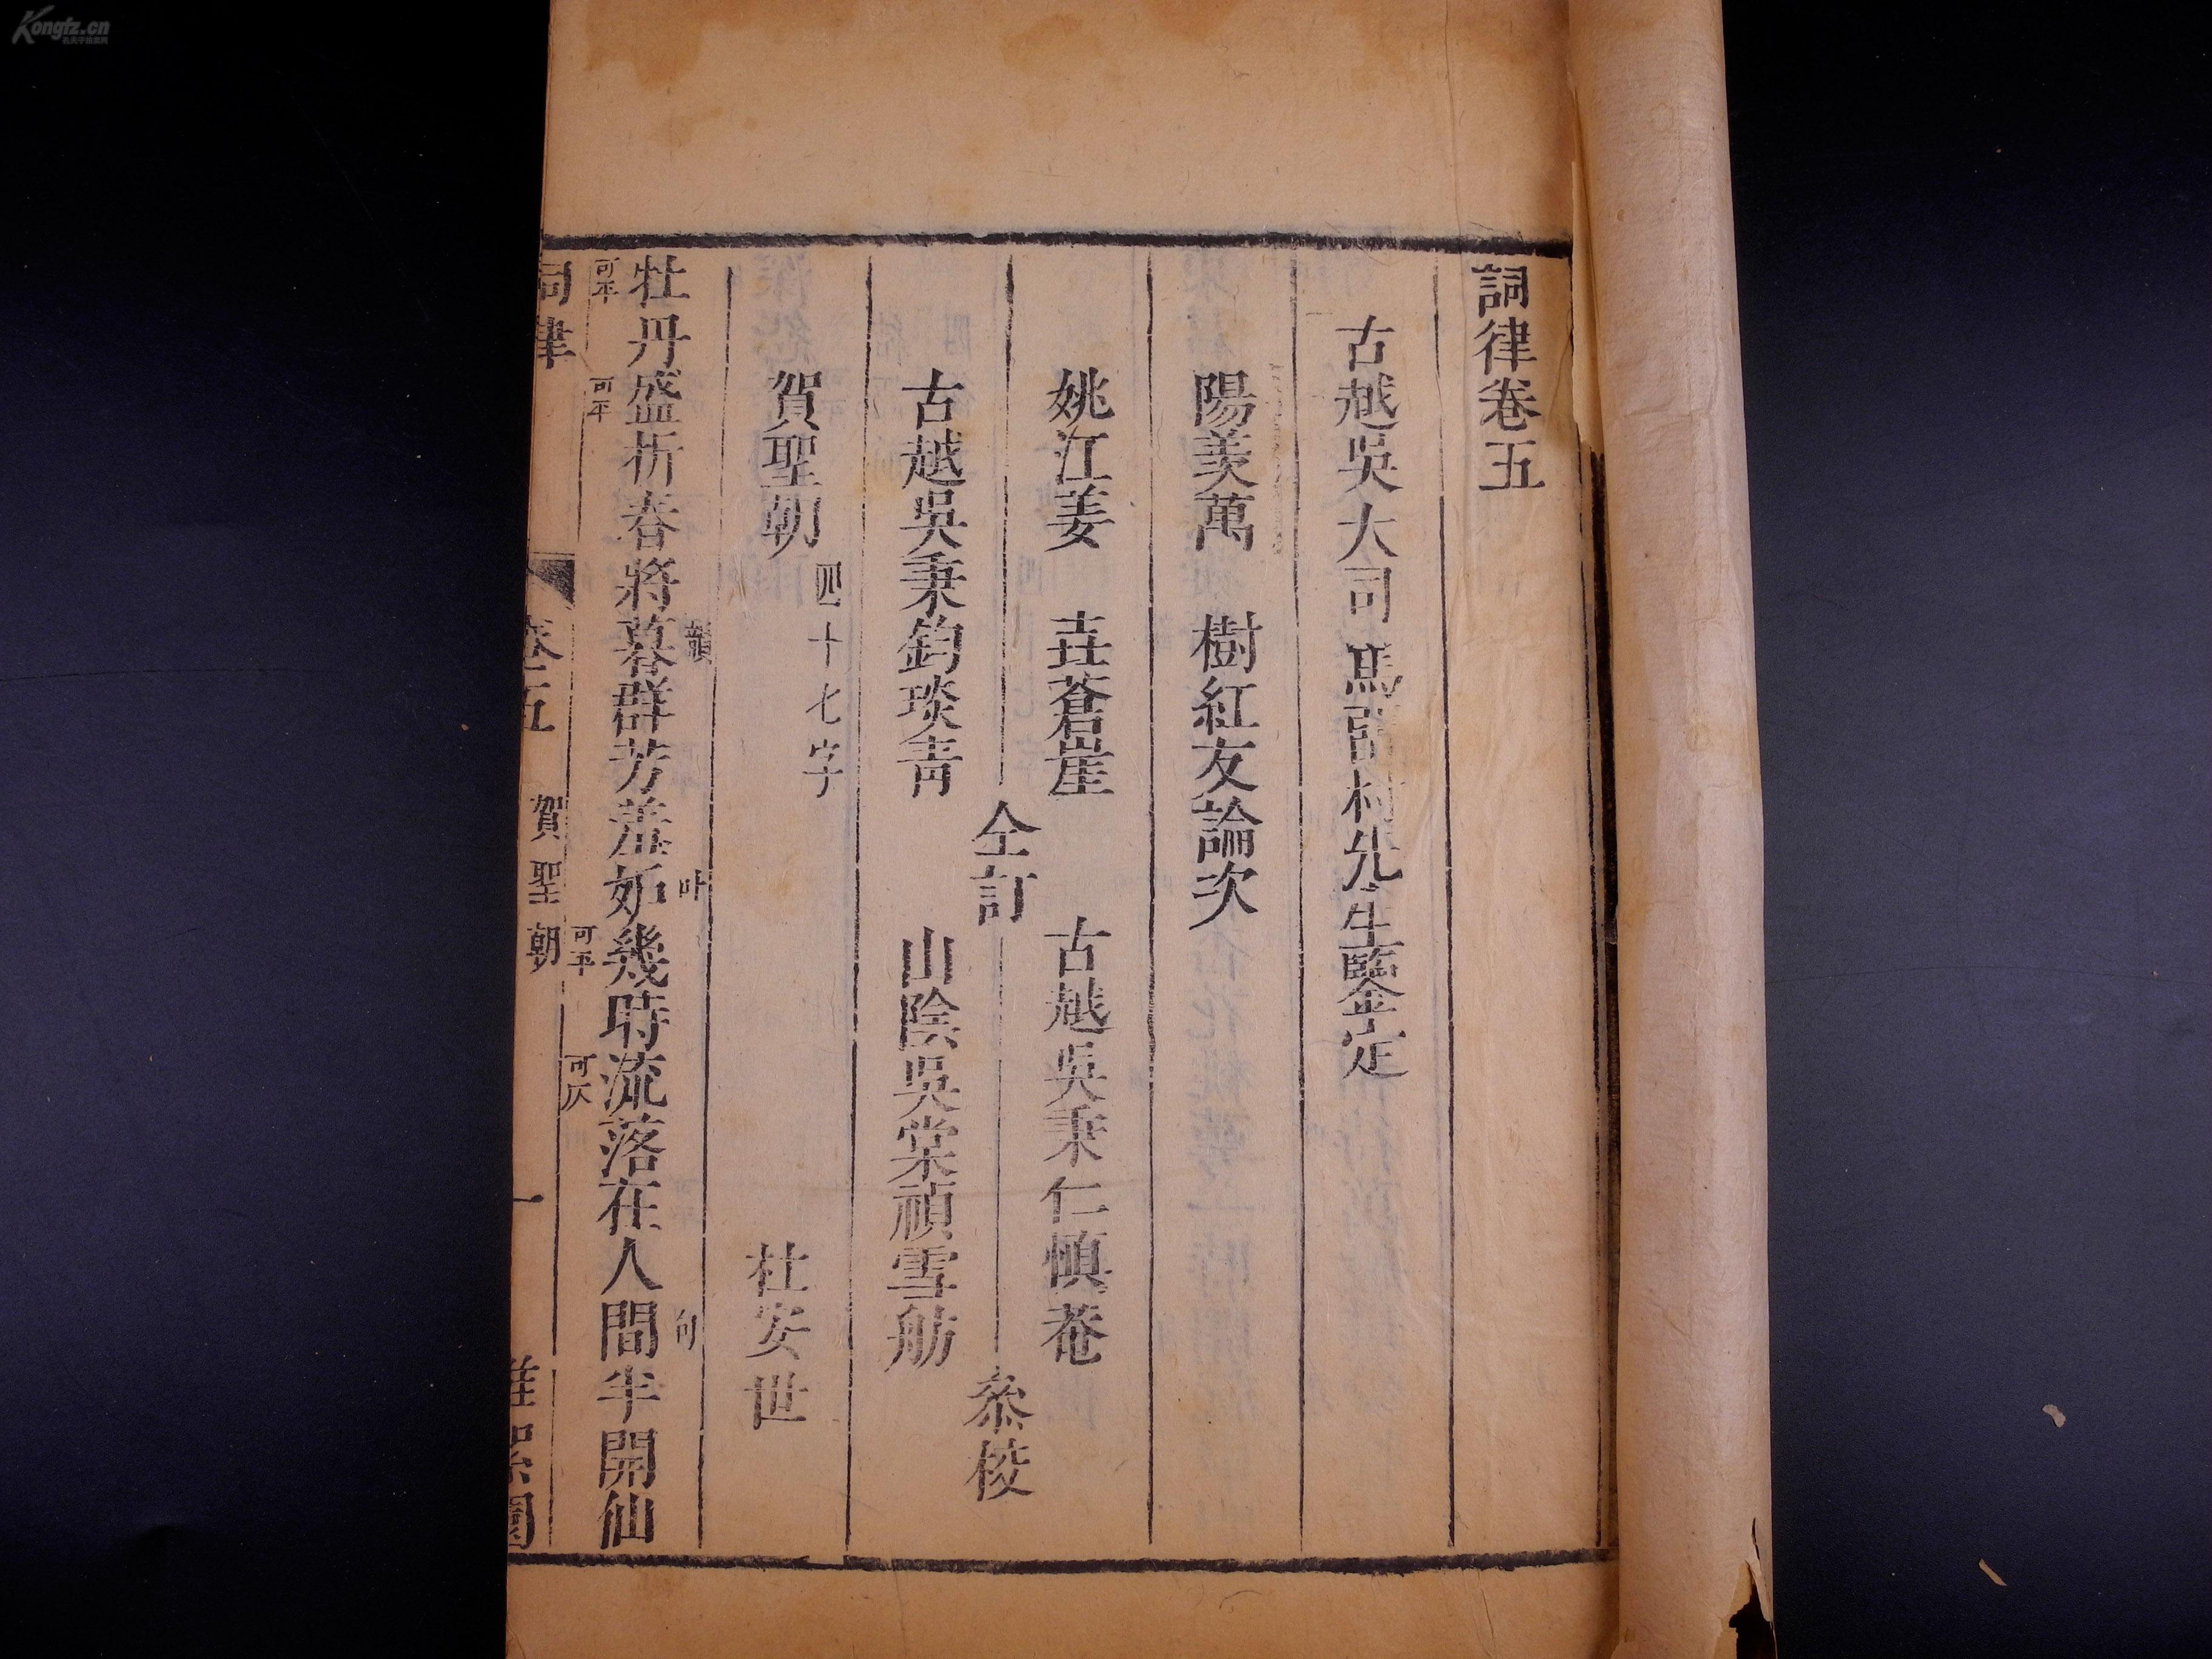 詞律卷五
古越吳大司馬留村先生鑒定
陽羨萬 樹紅友論次
姚江姜 垚蒼崖
古越吳秉鈞琰青
仝訂
古越吳秉仁慎菴
山陰吳棠禎雪舫
叅校
賀聖朝 四十七字 杜安世
牡丹盛折春將暮韻群芳羞妒叶幾時流落在人間句半開仙
可平 可平 可平 可仄
詞律 卷五 賀聖朝 一 堆絮園
Kongfz.cn